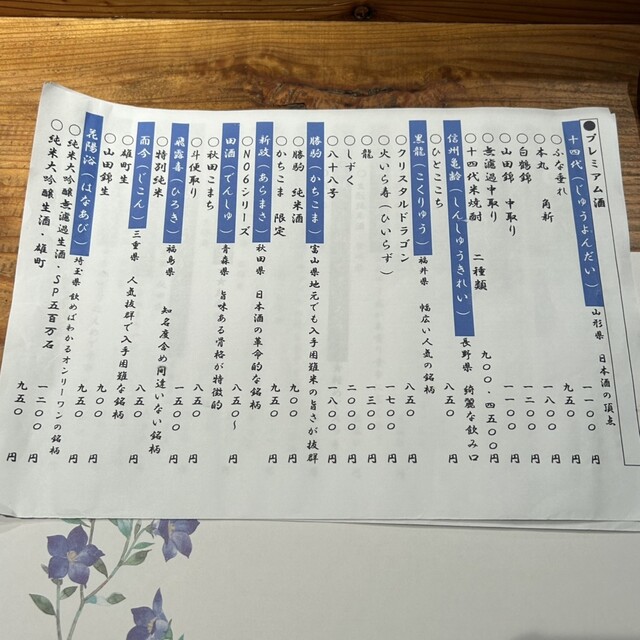 ●プレミアム酒
十四代（じゅうよんだい） 山形県 日本酒の頂点
○ふな垂れ 一一〇〇円
○本丸 角新 九五〇円
○白鶴錦 一八〇〇円
○山田錦 中取り 一一〇〇円
○無濾過中取り 一二〇〇円
○十四代米焼酎 二種類 九〇〇・四五〇〇円
信州亀齢（しんしゅうきれい） 長野県 綺麗な飲み口
○ひとごこち 八五〇円
黒龍（こくりゅう） 福井県 幅広い人気の銘柄
○クリスタルドラゴン 八五〇円
○火いら寿（ひいらず） 一七〇〇円
○龍 一三〇〇円
○しずく 二〇〇〇円
○八十八号 一八〇〇円
勝駒（かちこま） 富山県地元でも入手困難米の旨さが抜群
○勝駒 純米酒 九〇〇円
○かちこま 限定 九五〇円
新政（あらまさ） 秋田県 日本酒の革命的な銘柄
○NO6シリーズ 八五〇～円
田酒（でんしゅ） 青森県 旨味ある骨格が特徴的
○秋田こまち 八五〇円
○斗便取り 一五〇〇円
飛露喜（ひろき） 福島県 知名度含め間違いない銘柄
○特別純米 八五〇円
而今（じこん） 三重県 人気抜群で入手困難な銘柄
○雄町生 九五〇円
○山田錦生 九〇〇円
花陽浴（はなあび） 埼玉県 飲めばわかるオンリーワンの銘柄
○純米大吟醸無濾過生酒・SP五百万石 一二〇〇円
○純米大吟醸生酒 雄町 九五〇円